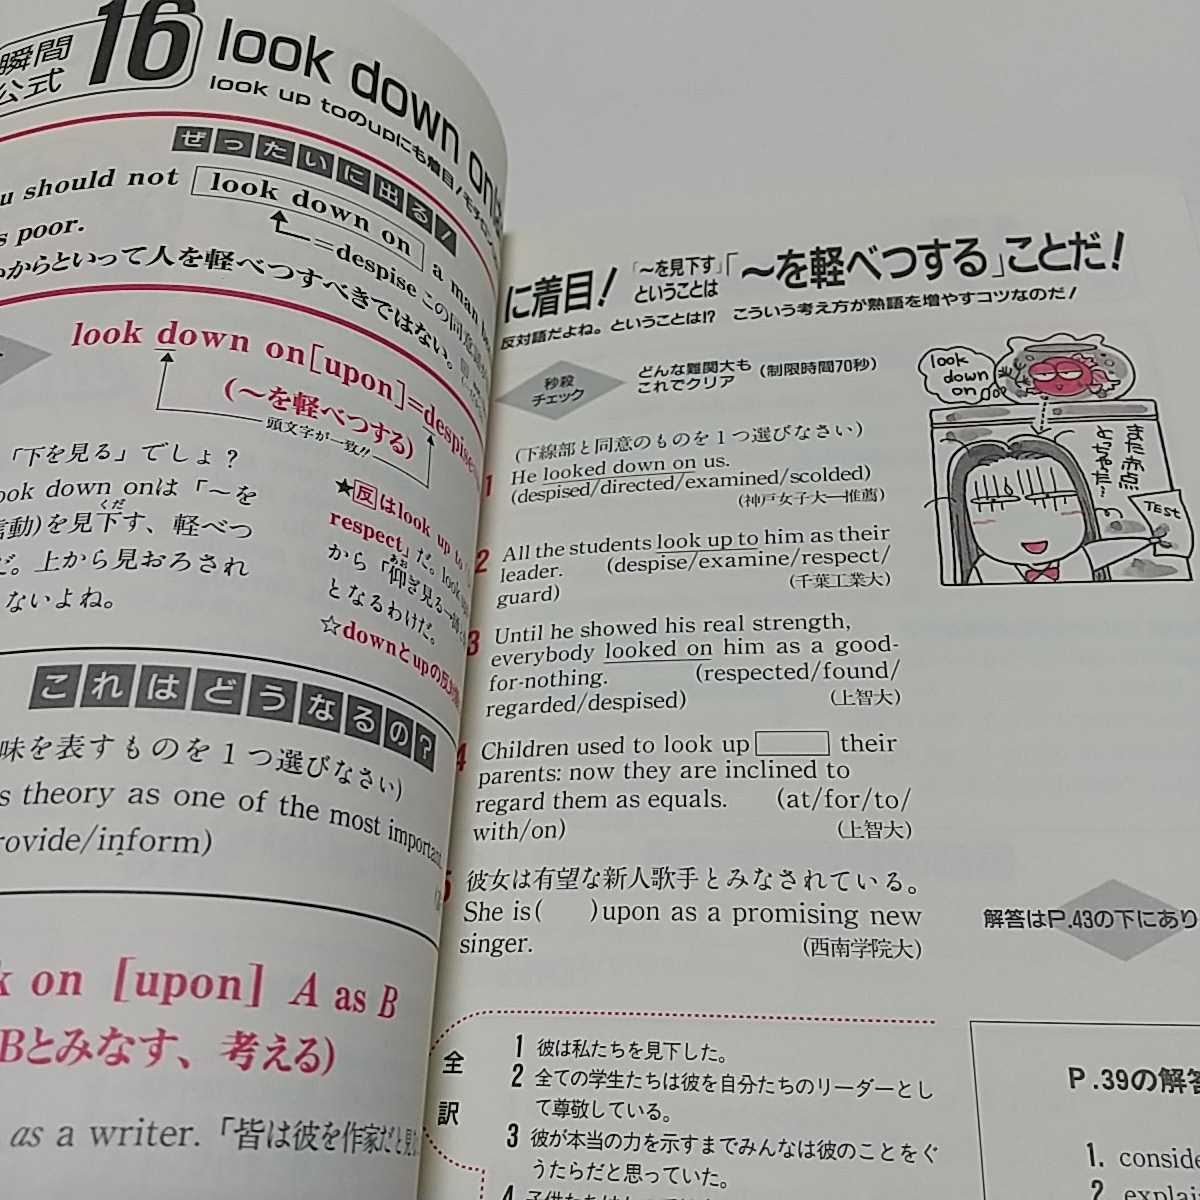 瞬間
公式
16
look down on
look up toのupにも着目!
ぜったいに出る!
should not look down on a man
s poor.
=despise この同意語
からといって人を軽べつすべきではない。
look down on[upon]=despise
(～を軽べつする)
頭文字が一致!!
「下を見る」でしょ?
ook down onは「～を
くだ
動)を見下す、軽べつ
だ。上から見おろされ
ないよね。
★反はlook up to
respect」だ。look
あお
から「仰ぎ見る→
となるわけだ。
☆downとupの反対
これはどうなるの?
味を表すものを1つ選びなさい)
s theory as one of the most important
rovide/inform)
k on [upon] A as B
Bとみなす、考える)
as a writer.「皆は彼を作家だと見
に着目!「～を見下す」ということは「～を軽べつする」ことだ!
反対語だよね。ということは!? こういう考え方が熟語を増やすコツなのだ!
秒殺
チェック
どんな難関大も
これでクリア
(制限時間70秒)
look
down
on
また赤点
とっちゃった…
TEST
(下線部と同意のものを1つ選びなさい)
1 He looked down on us.
(despised/directed/examined/scolded)
(神戸女子大―推薦)
2 All the students look up to him as their
leader. (despise/examine/respect/
guard) (千葉工業大)
3 Until he showed his real strength,
everybody looked on him as a good-
for-nothing. (respected/found/
regarded/despised) (上智大)
4 Children used to look up □ their
parents: now they are inclined to
regard them as equals. (at/for/to/
with/on) (上智大)
5 彼女は有望な新人歌手とみなされている。
She is( )upon as a promising new
singer. (西南学院大)
解答はP.43の下にあり
全
訳
1 彼は私たちを見下した。
2 全ての学生たちは彼を自分たちのリーダーとし
て尊敬している。
3 彼が本当の力を示すまでみんなは彼のことをぐ
うたらだと思っていた。
4 子供たちは
P.39の解答
1. conside
2. explai